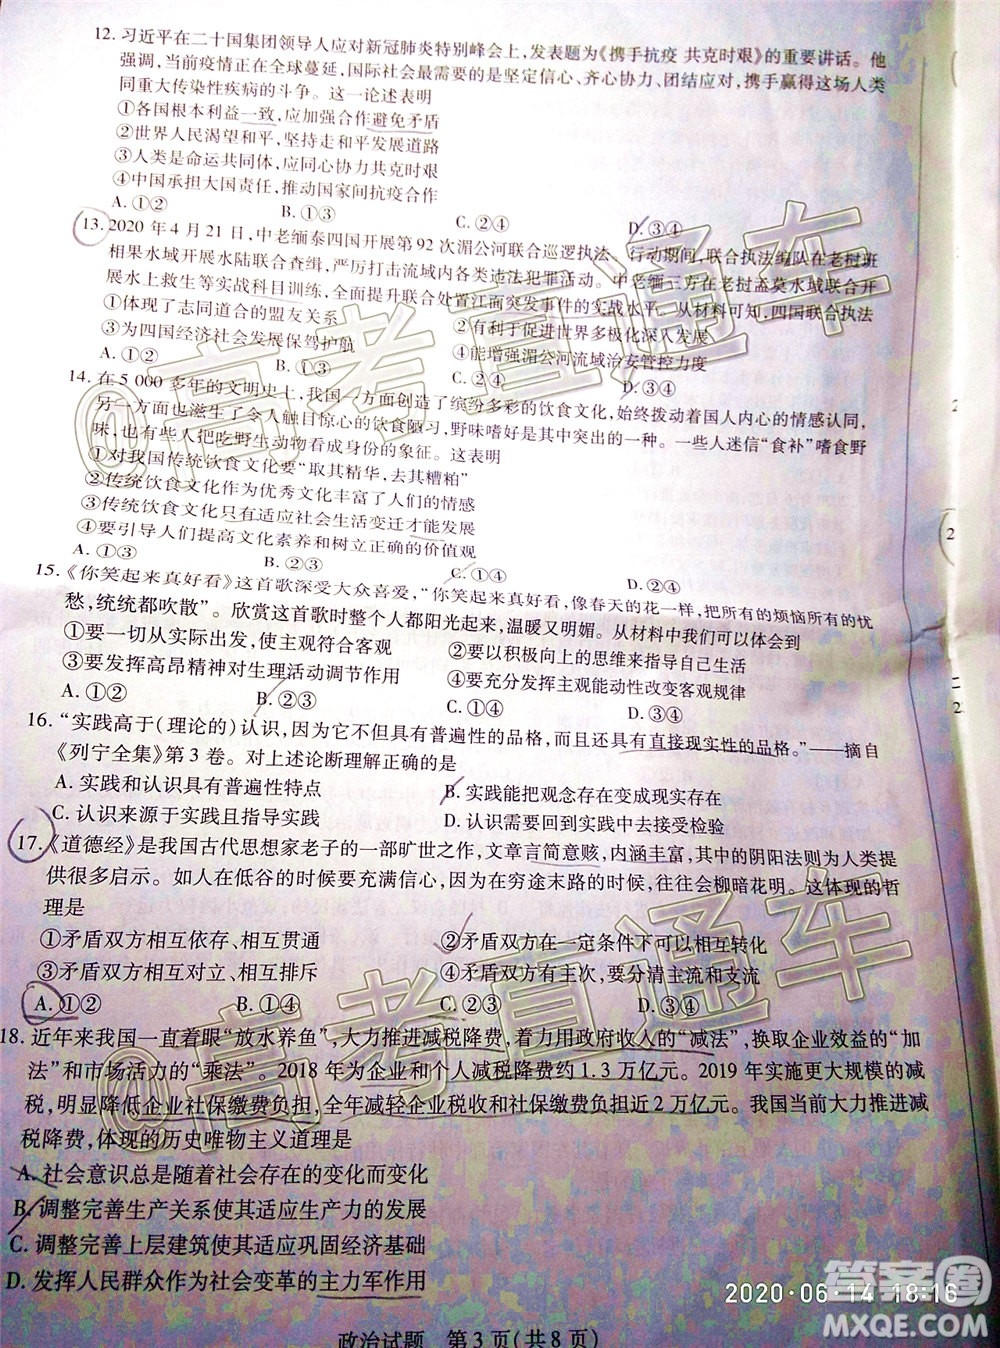 12. 习近平在二十国集团领导人应对新冠肺炎特别峰会上，发表题为《携手抗疫 共克时艰》的重要讲话。他
强调，当前疫情正在全球蔓延，国际社会最需要的是坚定信心、齐心协力、团结应对，携手赢得这场人类
同重大传染性疾病的斗争。这一论述表明
①各国根本利益一致，应加强合作避免矛盾
②世界人民渴望和平，坚持走和平发展道路
③人类是命运共同体，应同心协力共克时艰
④中国承担大国责任，推动国家间抗疫合作
A. ①② B. ①③ C. ②④ D. ③④
13. 2020 年 4 月 21 日，中老缅泰四国开展第 92 次湄公河联合巡逻执法。行动期间，联合执法编队在老挝班
相果水域开展水陆联合查缉，严厉打击流域内各类违法犯罪活动。中老缅三方在老挝孟莫水域联合开
展水上救生等实战科目训练，全面提升联合处置江面突发事件的实战水平。从材料可知，四国联合执法
①体现了志同道合的盟友关系 ②有利于促进世界多极化深入发展
③为四国经济社会发展保驾护航 ④能增强湄公河流域治安管控力度
A. ①② B. ①③ C. ②④ D. ③④
14. 在 5 000 多年的文明史上，我国一方面创造了缤纷多彩的饮食文化，始终拨动着国人内心的情感认同，
另一方面也滋生了令人触目惊心的饮食陋习，野味嗜好是其中突出的一种。一些人迷信“食补”嗜食野
味，也有些人把吃野生动物看成身份的象征。这表明
①对我国传统饮食文化要“取其精华，去其糟粕”
②传统饮食文化作为优秀文化丰富了人们的情感
③传统饮食文化只有适应社会生活变迁才能发展
④要引导人们提高文化素养和树立正确的价值观
A. ①③ B. ②③ C. ①④ D. ②④
15. 《你笑起来真好看》这首歌深受大众喜爱，“你笑起来真好看，像春天的花一样，把所有的烦恼所有的忧
愁，统统都吹散”。欣赏这首歌时整个人都阳光起来，温暖又明媚。从材料中我们可以体会到
①要一切从实际出发，使主观符合客观 ②要以积极向上的思维来指导自己生活
③要发挥高昂精神对生理活动调节作用 ④要充分发挥主观能动性改变客观规律
A. ①② B. ②③ C. ①④ D. ③④
16. “实践高于(理论的)认识，因为它不但具有普遍性的品格，而且还具有直接现实性的品格。”——摘自
《列宁全集》第 3 卷。对上述论断理解正确的是
A. 实践和认识具有普遍性特点 B. 实践能把观念存在变成现实存在
C. 认识来源于实践且指导实践 D. 认识需要回到实践中去接受检验
17. 《道德经》是我国古代思想家老子的一部旷世之作，文章言简意赅，内涵丰富，其中的阴阳法则为人类提
供很多启示。如人在低谷的时候要充满信心，因为在穷途末路的时候，往往会柳暗花明。这体现的哲
理是
①矛盾双方相互依存、相互贯通 ②矛盾双方在一定条件下可以相互转化
③矛盾双方相互对立、相互排斥 ④矛盾双方有主次，要分清主流和支流
A. ①② B. ①④ C. ②③ D. ③④
18. 近年来我国一直着眼“放水养鱼”，大力推进减税降费，着力用政府收入的“减法”，换取企业效益的“加
法”和市场活力的“乘法”。2018 年为企业和个人减税降费约 1.3 万亿元。2019 年实施更大规模的减
税，明显降低企业社保缴费负担，全年减轻企业税收和社保缴费负担近 2 万亿元。我国当前大力推进减
税降费，体现的历史唯物主义道理是
A. 社会意识总是随着社会存在的变化而变化
B. 调整完善生产关系使其适应生产力的发展
C. 调整完善上层建筑使其适应巩固经济基础
D. 发挥人民群众作为社会变革的主力军作用
政治试题 第 3 页(共 8 页)
2020·06·14 18:16
@高考直通车
@高考直通车
答案圈
MXQE.COM